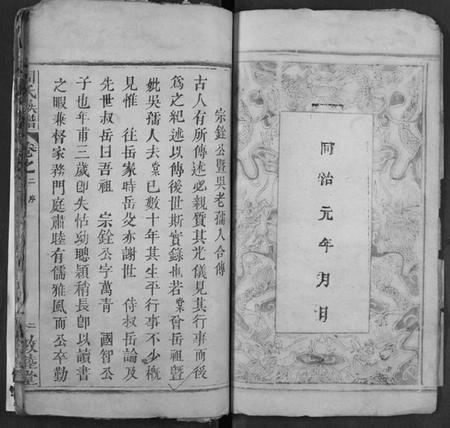 同治元年月日
宗銓公暨吳老孺人合傳
古人有所傳述必親質其光儀見其行事而後
爲之紀述以傳後世斯實錄也若棠曾岳祖暨
妣吳孺人去棠已數十年其生平行事不少概
見惟往岳家時岳父亦謝世侍叔岳論及
先世叔岳曰吾祖宗銓公字萬青國智公
子也年甫三歲卽失怙幼聰穎稍長卽以讀書
之暇兼督家務門庭肅睦有儒雅風而公卒勤
氏族譜
卷之二序
二
敦睦堂